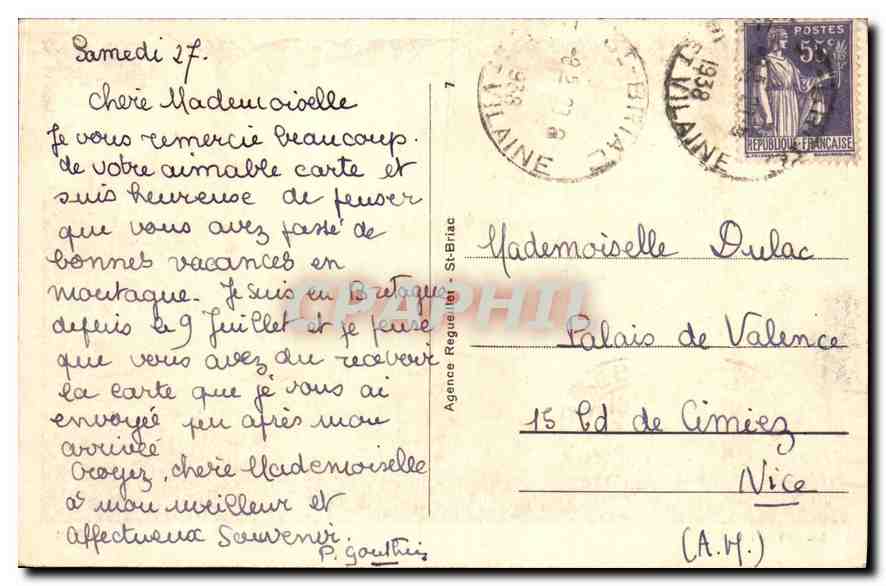 Samedi 27.
Chère Mademoiselle
Je vous remercie beaucoup.
de votre aimable carte et
suis heureuse de penser
que vous avez passé de
bonnes vacances en
montagne. Je suis en Bretagne
depuis le 9 Juillet et je pense
que vous avez du recevoir
la carte que je vous ai
envoyée peu après mon
arrivée
Croyez, chère Mademoiselle
à mon meilleur et
affectueux Souvenir.
P. Gouthier
7
Agence Regueiller - St-Briac
ST-BRIAC
ILLE-ET-VILAINE
1938
POSTES
55c
REPUBLIQUE FRANÇAISE
Mademoiselle Dulac
Palais de Valence
15 Bd de Cimiez
Nice
(A.M.)
CPAPHIL